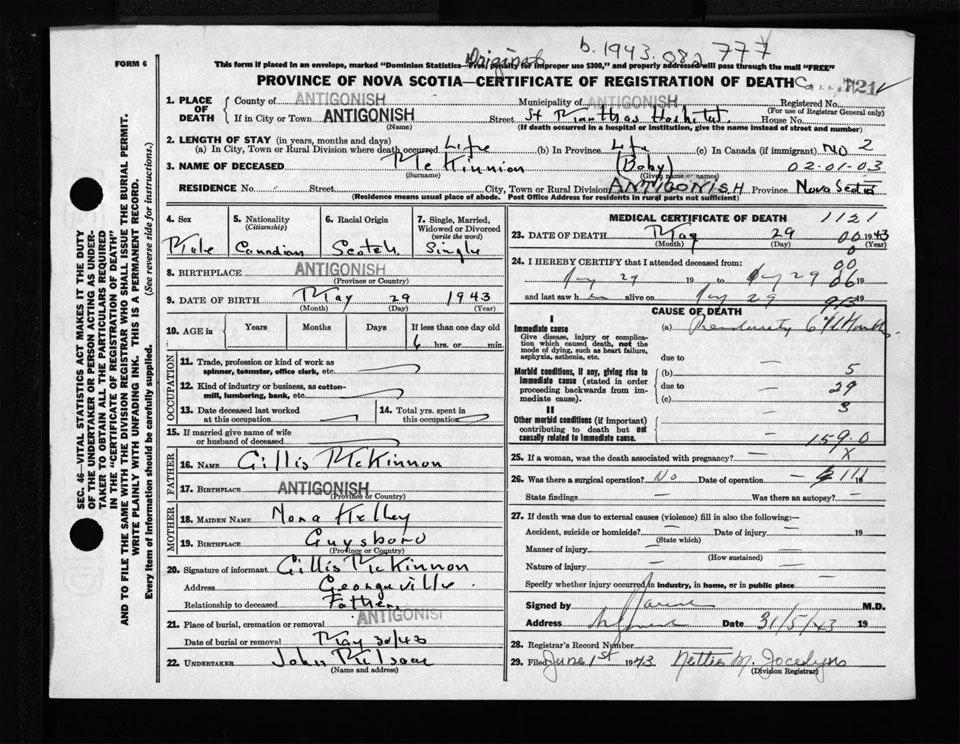 b. 1943. 082 777
FORM 6
Original
This form if placed in an envelope, marked "Dominion Statistics—Free, penalty for improper use $300," and properly addressed will pass through the mail "FREE"
PROVINCE OF NOVA SCOTIA—CERTIFICATE OF REGISTRATION OF DEATH
1. PLACE OF DEATH County of ANTIGONISH Municipality of ANTIGONISH Registered No.
(For use of Registrar General only)
If in City or Town ANTIGONISH Street St Marthas Hospital. House No.
(Name) (If death occurred in a hospital or institution, give the name instead of street and number)
2. LENGTH OF STAY (in years, months and days)
(a) In City, Town or Rural Division where death occurred Life (b) In Province Life (c) In Canada (if immigrant) NO 2
3. NAME OF DECEASED McKinnon (Baby) 02-01-03
(Surname) (Given name or names)
RESIDENCE No. Street City, Town or Rural Division ANTIGONISH Province Nova Scotia
(Residence means usual place of abode. Post Office Address for residents in rural parts not sufficient)
4. Sex 5. Nationality (Citizenship) 6. Racial Origin 7. Single, Married, Widowed or Divorced (write the word)
Male Canadian Scotch Single
8. BIRTHPLACE ANTIGONISH
(Province or Country)
9. DATE OF BIRTH May 29 1943
(Month) (Day) (Year)
10. AGE in Years Months Days If less than one day old
6 hrs. or min.
OCCUPATION
11. Trade, profession or kind of work as spinner, teamster, office clerk, etc.
12. Kind of industry or business, as cotton-mill, lumbering, bank, etc.
13. Date deceased last worked at this occupation 14. Total yrs. spent in this occupation
15. If married give name of wife or husband of deceased
FATHER
16. NAME Gillis McKinnon
17. BIRTHPLACE ANTIGONISH
(Province or Country)
MOTHER
18. MAIDEN NAME Mona Kelley
19. BIRTHPLACE Guysboro
(Province or Country)
20. Signature of informant Gillis McKinnon
Address Georgeville
Relationship to deceased Father
21. Place of burial, cremation or removal ANTIGONISH
Date of burial or removal May 30/43
22. UNDERTAKER John McIsaac
(Name and address)
MEDICAL CERTIFICATE OF DEATH 1121
23. DATE OF DEATH May 29 1943
(Month) (Day) (Year)
24. I HEREBY CERTIFY that I attended deceased from:
May 29 19 to May 29 19
and last saw h alive on May 29 19
CAUSE OF DEATH
I
Immediate cause (a) Prematurity 6 1/2 Months
Give disease, injury or complication which caused death, not the mode of dying, such as heart failure, asphyxia, asthenia, etc.
due to
Morbid conditions, if any, giving rise to immediate cause (stated in order proceeding backwards from immediate cause). (b) 5
due to 29
(c) 3
II
Other morbid conditions (if important) contributing to death but not causally related to immediate cause.
159.0
25. If a woman, was the death associated with pregnancy? — X
26. Was there a surgical operation? No Date of operation — 19
State findings — Was there an autopsy? —
27. If death was due to external causes (violence) fill in also the following:—
Accident, suicide or homicide? — Date of injury — 19
(State which)
Manner of injury —
(How sustained)
Nature of injury —
Specify whether injury occurred in industry, in home, or in public place
Signed by M.D.
Address Date 31/5/43 19
28. Registrar's Record Number
29. Filed June 1st 1943 Nettie M. Jocelyn
(Division Registrar)
SEC. 46—VITAL STATISTICS ACT MAKES IT THE DUTY
OF THE UNDERTAKER OR PERSON ACTING AS UNDERTAKER TO OBTAIN ALL THE PARTICULARS REQUIRED
IN THE "CERTIFICATE OF REGISTRATION OF DEATH"
AND TO FILE THE SAME WITH THE DIVISION REGISTRAR WHO SHALL ISSUE THE BURIAL PERMIT.
WRITE PLAINLY WITH UNFADING INK. THIS IS A PERMANENT RECORD.
Every item of information should be carefully supplied. (See reverse side for instructions.)